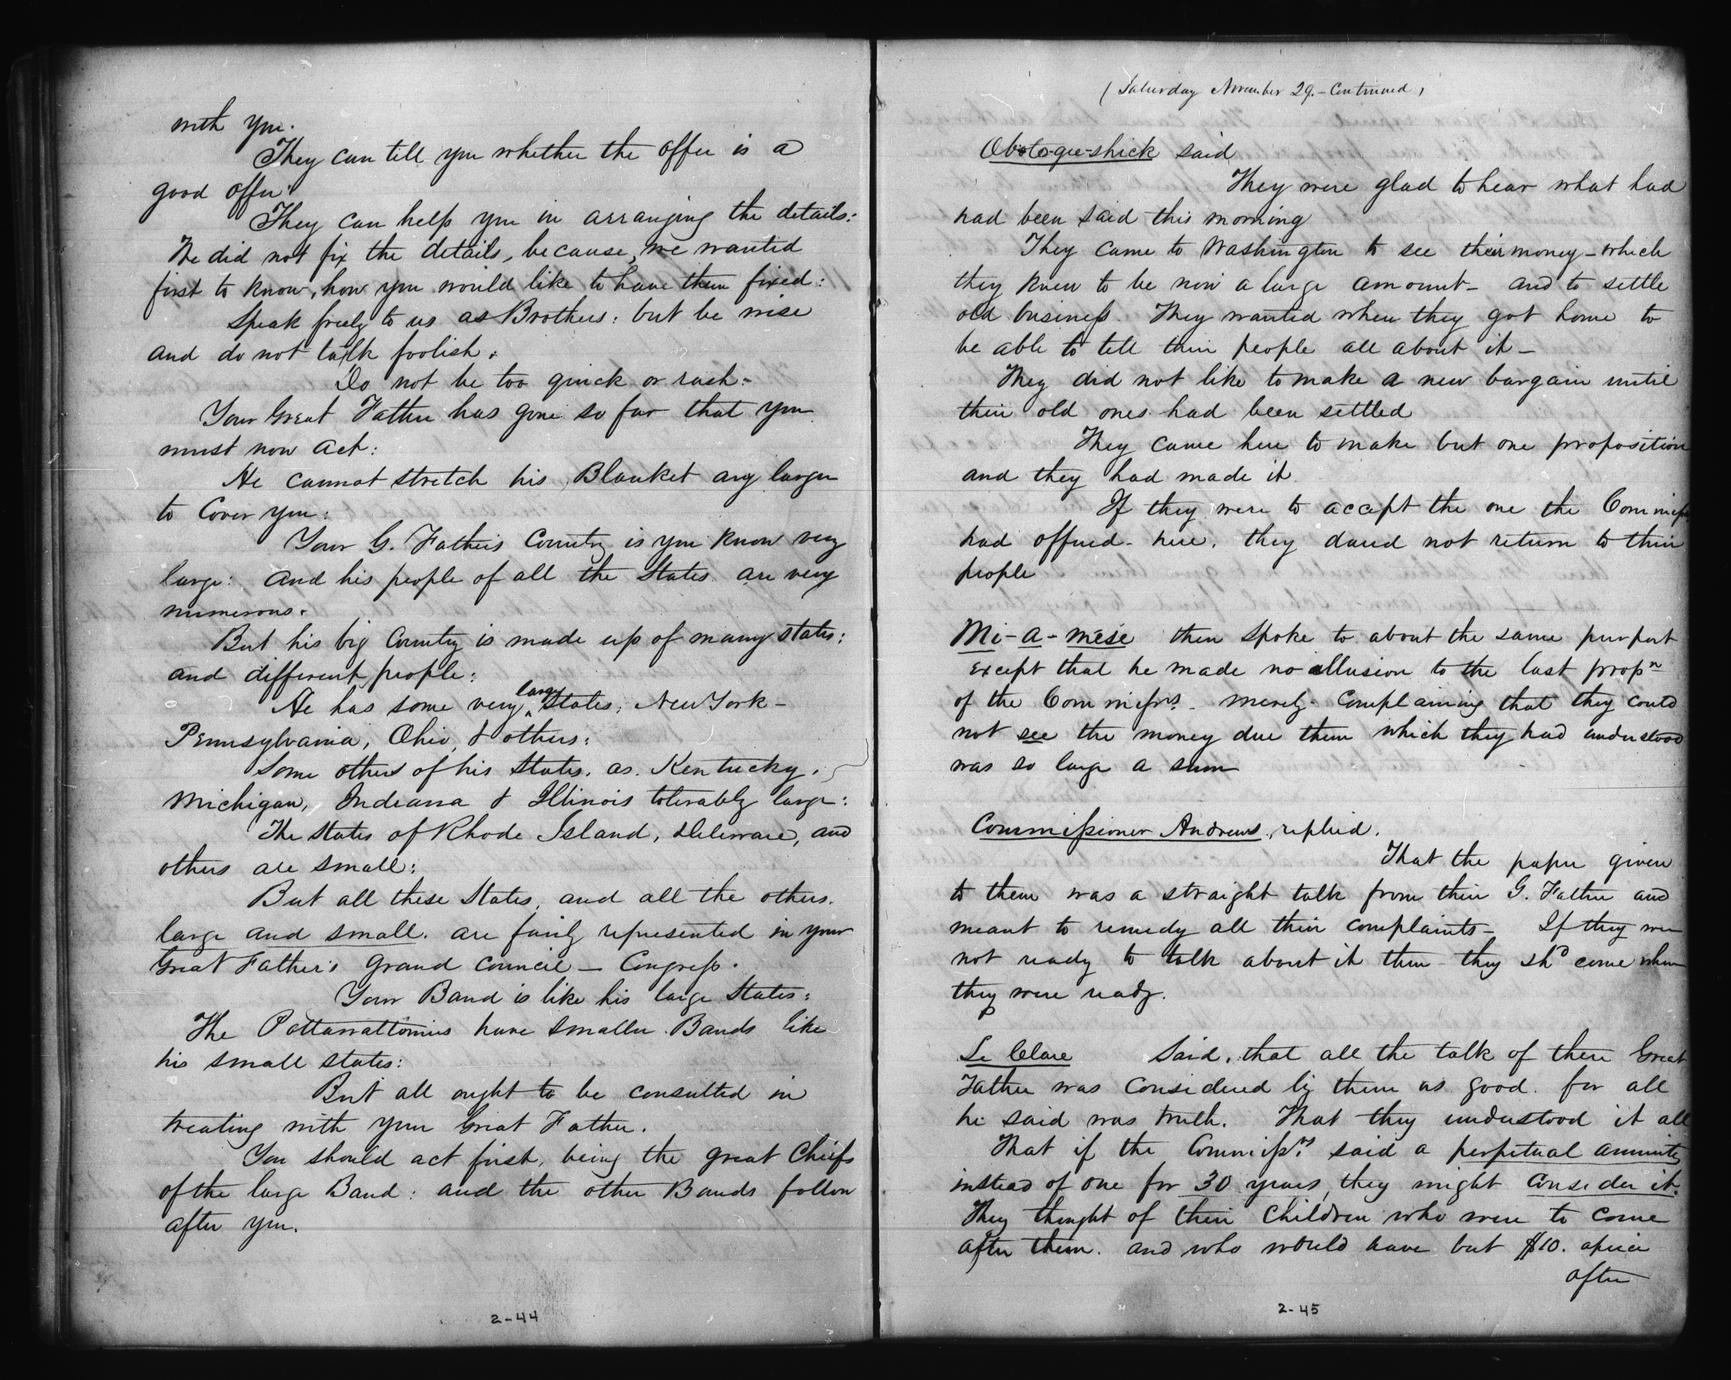 with you.
They can tell you whether the offer is a
good offer:
They can help you in arranging the details:
We did not fix the details, because, we wanted
first to know, how you would like to have them fixed:
Speak freely to us as Brothers: but be wise
and do not talk foolish.
Do not be too quick or rash.
Your Great Father has gone so far that you
must now act:
He cannot stretch his Blanket any larger
to Cover you:
Your G. Father's Country is you know very
large: and his people of all the States are very
numerous.
But his big Country is made up of many states:
and different people:
large
He has some very states: New York -
Pennsylvania, Ohio, & others:
Some others of his States. as. Kentucky.
Michigan, Indiana & Illinois tolerably large:
The States of Rhode Island, Deleware, and
others are small:
But all these States, and all the others.
large and small. are fairly represented in your
Great Father's Grand Council — Congress.
Your Band is like his large States:
The Pottawattomies have smaller Bands like
his small states:
But all ought to be consulted in
treating with your Great Father.
You should act first, being the great Chiefs
of the large Band: and the other Bands follow
after you.
2-44
(Saturday November 29.- Continued)
Obtogue-shick said
They were glad to hear what had
had been said this morning
They came to Washington to see their money - which
they knew to be now a large amount - and to settle
old business. They wanted when they got home to
be able to tell their people all about it -
They did not like to make a new bargain until
their old ones had been settled
They came here to make but one proposition
and they had made it.
If they were to accept the one the Commiss
had offered here, they dared not return to their
people
Mi-a-mese then spoke to about the same purport
except that he made no allusion to the last propn
of the Commissrs. merely complaining that they could
not see the money due them which they had understood
was so large a sum
Commissioner Andrews, replied.
That the paper given
to them was a straight talk from their G. Father and
meant to remedy all their complaints - If they were
not ready to talk about it then they shd come when
they were ready.
Le Clare said, that all the talk of there Great
Father was considered by them as good. for all
he said was truth. That they understood it all
That if the Commissrs. said a perpetual annuity
instead of one for 30 years, they might consider it.
They thought of their children who were to come
after them. and who would have but $10. apiece
after
2-45